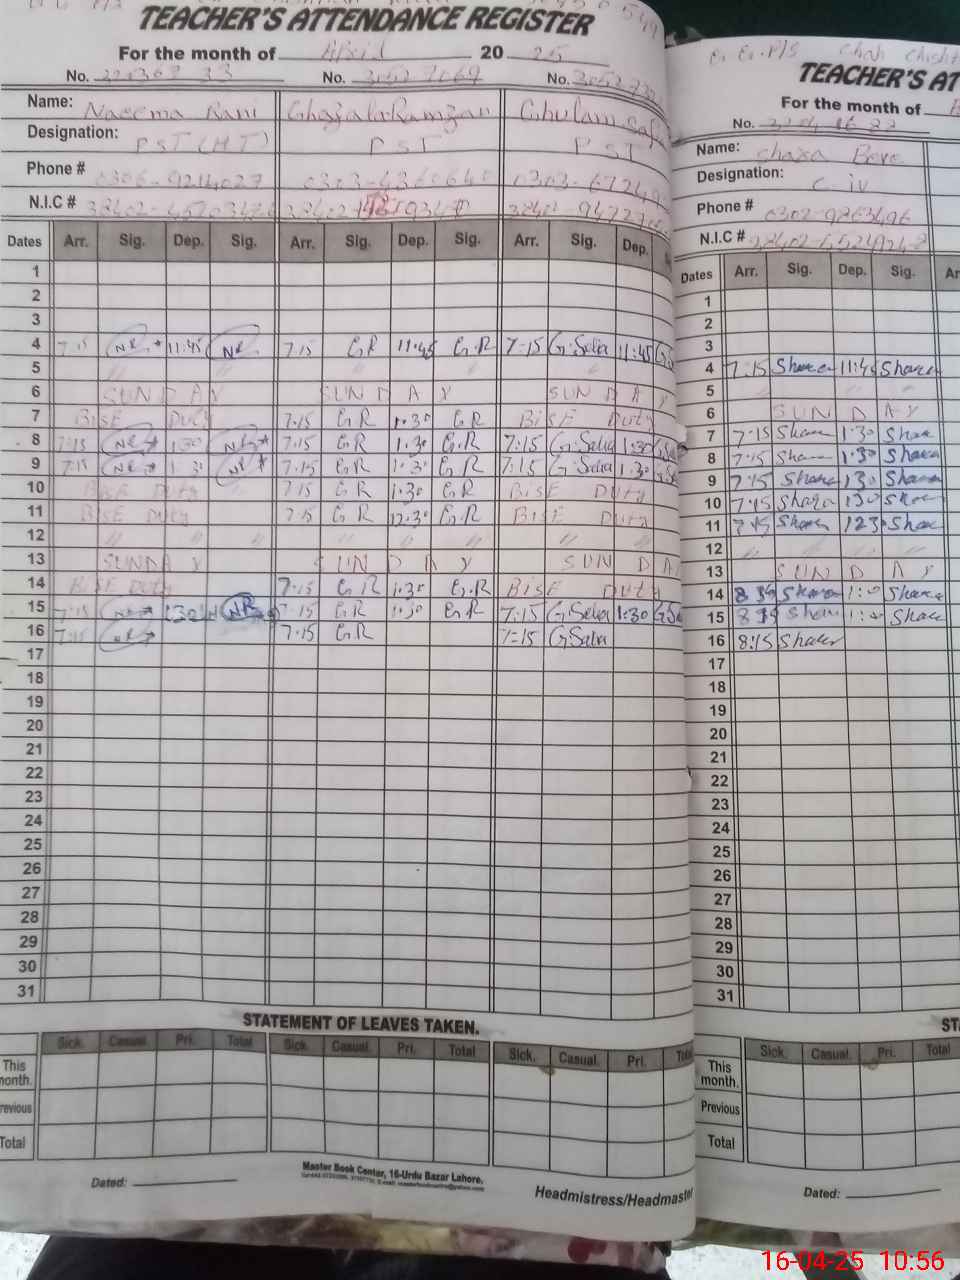 TEACHER'S ATTENDANCE REGISTER
For the month of April 20 25
No. No. 3052 7069 No. 3052
Name: Naeema Rani Ghazala Ramzan Ghulam
Designation: PST (HT) PST PST
Phone # 0306-9214027 0303-4360640 0303-67249
N.I.C # 38402- 38402- 38402
Dates Arr. Sig. Dep. Sig. Arr. Sig. Dep. Sig. Arr. Sig. Dep.
1
2
3
4 7:15 NR 11:45 NR 7:15 G.R 11:45 G.R 7:15 G.Safia 11:45
5 " " " " " "
6 SUNDAY SUNDAY SUNDAY
7 BISE Duty 7:15 G.R 1:30 G.R BISE Duty
8 7:15 NR 1:30 NR 7:15 G.R 1:30 G.R 7:15 G.Safia 1:30
9 7:15 NR 1:30 NR 7:15 G.R 1:30 G.R 7:15 G.Safia 1:30
10 BISE Duty 7:15 G.R 1:30 G.R BISE Duty
11 BISE Duty 7:15 G.R 12:30 G.R BISE Duty
12 " " " " " "
13 SUNDAY SUNDAY SUNDA
14 BISE Duty 7:15 G.R 1:30 G.R BISE Duty
15 7:15 NR 1:30 NR 7:15 G.R 1:30 G.R 7:15 G.Safia 1:30
16 7:15 NR 7:15 G.R 7:15 G Safia
17
18
19
20
21
22
23
24
25
26
27
28
29
30
31
STATEMENT OF LEAVES TAKEN.
Sick. Casual. Pri. Total Sick. Casual. Pri. Total Sick. Casual. Pri. Total
This month.
Previous
Total
Dated:
Master Book Center, 16-Urdu Bazar Lahore.
Headmistress/Headmaster
P/S Chah
TEACHER'S AT
For the month of
No.
Name: Shaza
Designation:
Phone # 0302-9863496
N.I.C # 38402-
Dates Arr. Sig. Dep. Sig. Ar
1
2
3
4 7:15 Shaza 11:45 Shaza
5 " " " "
6 SUNDAY
7 7:15 Shaza 1:30 Shaza
8 7:15 Shaza 1:30 Shaza
9 7:15 Shaza 1:30 Shaza
10 7:15 Shaza 1:30 Shaza
11 7:15 Shaza 12:30 Shaza
12 " " " "
13 SUNDAY
14 Shaza 1:00 Shaza
15 Shaza 1:00 Shaza
16 8:15 Shaza
17
18
19
20
21
22
23
24
25
26
27
28
29
30
31
Sick. Casual. Pri. Total
This month.
Previous
Total
Dated:
16-04-25 10:56